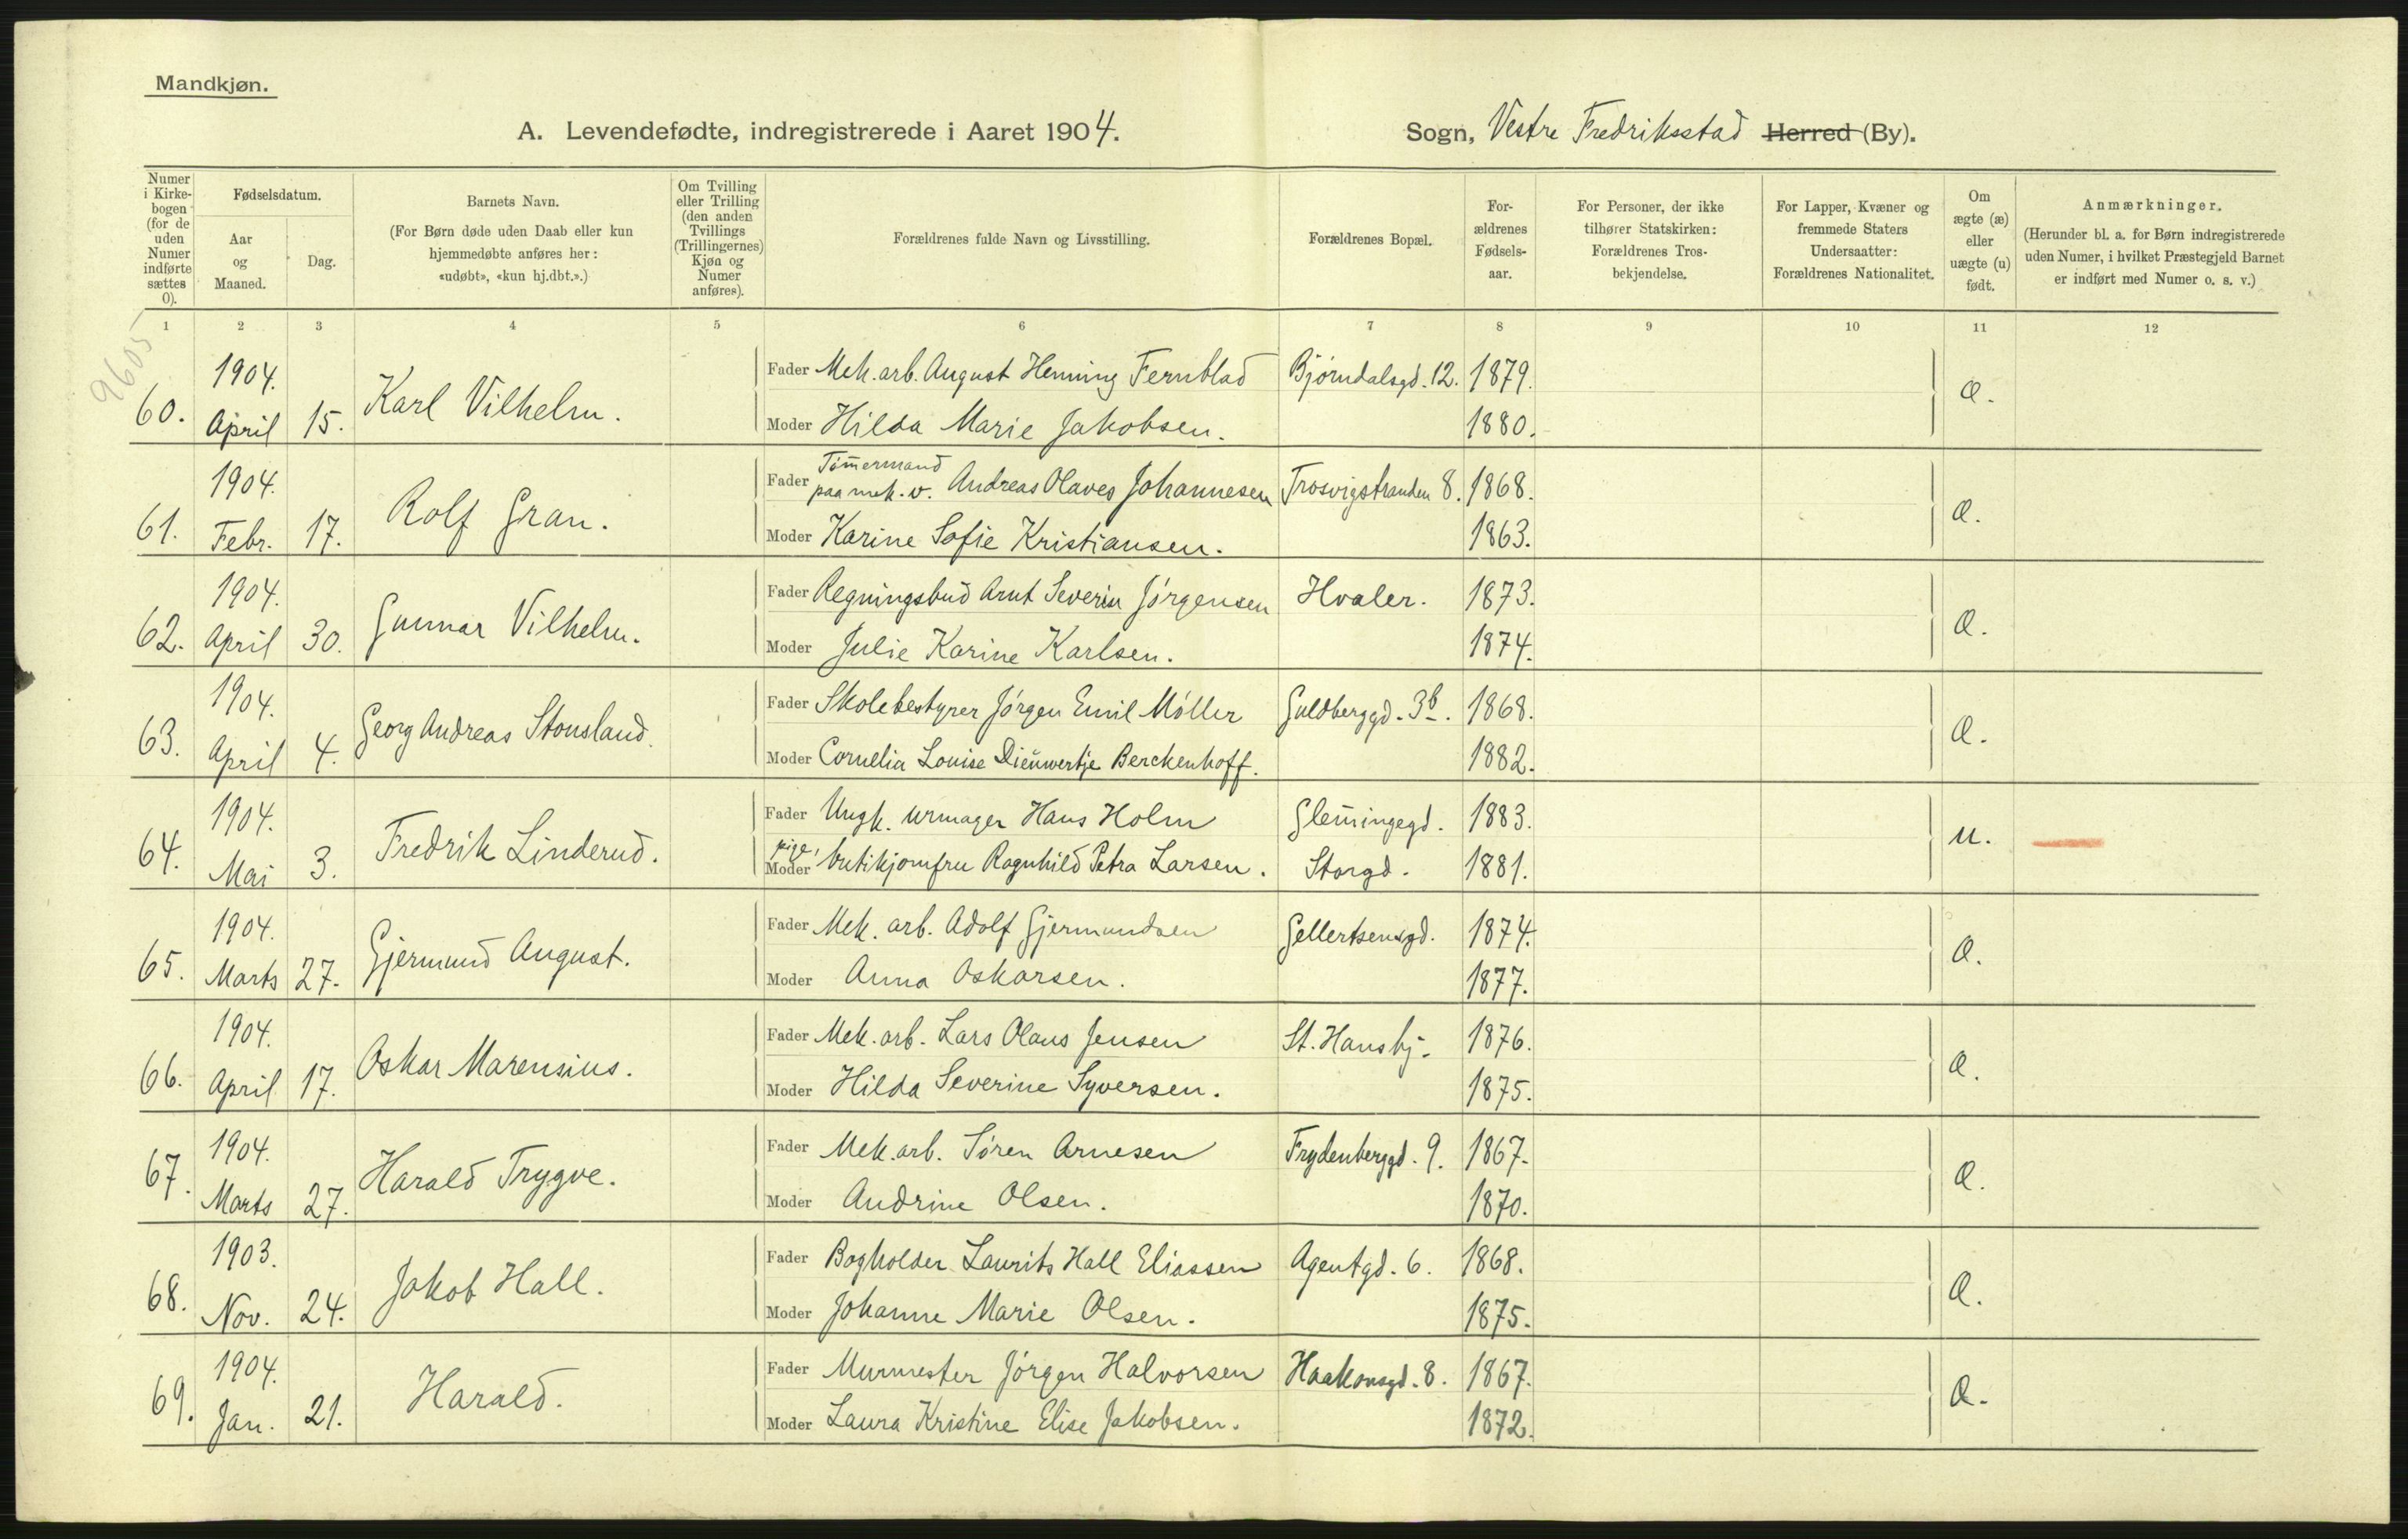 Mandkjøn.
A. Levendefødte, indregistrerede i Aaret 1904.
Sogn, Vestre Fredriksstad Herred (By).
Numer i Kirkebogen (for de uden Numer indførte sættes 0).
Fødselsdatum.
Aar og Maaned.
Dag.
Barnets Navn.
(For Børn døde uden Daab eller kun hjemmedøbte anføres her: «udøbt», «kun hj.dbt.».)
Om Tvilling eller Trilling (den anden Tvillings (Trillingernes) Kjøn og Numer anføres).
Forældrenes fulde Navn og Livsstilling.
Forældrenes Bopæl.
Forældrenes Fødselsaar.
For Personer, der ikke tilhører Statskirken: Forældrenes Trosbekjendelse.
For Lapper, Kvæner og fremmede Staters Undersaatter: Forældrenes Nationalitet.
Om ægte (æ) eller uægte (u) født.
Anmærkninger.
(Herunder bl. a. for Børn indregistrerede uden Numer, i hvilket Præstegjeld Barnet er indført med Numer o. s. v.)
1 2 3 4 5 6 7 8 9 10 11 12
9605
60. 1904. April 15. Karl Vilhelm. Fader Mek. arb. August Henning Fernblad Bjørndalsgd. 12. 1879. æ.
Moder Hilda Marie Jakobsen. 1880.
61. 1904. Febr. 17. Rolf Gran. Fader Tømermand paa mek. v. Andreas Olaves Johannesen Trosvigstranden 8. 1868. æ.
Moder Karine Sofie Kristiansen. 1863.
62. 1904. April 30. Gunnar Vilhelm. Fader Regningsbud Arnt Severin Jørgensen Hvaler. 1873. æ.
Moder Julie Karine Karlsen. 1874.
63. 1904. April 4. Georg Andreas Stousland. Fader Skolebestyrer Jørgen Emil Møller Guldberggd. 3b. 1868. æ.
Moder Cornelia Louise Dieuwertje Berckenhoff. 1882.
64. 1904. Mai 3. Fredrik Linderud. Fader Ungk. urmager Hans Holm Glemingegd. 1883. u.
Moder pige, butikjomfru Ragnhild Petra Larsen. Storgd. 1881.
65. 1904. Marts 27. Gjermund August. Fader Mek. arb. Adolf Gjermundsen Gellertsensgd. 1874. æ.
Moder Anna Oskarsen. 1877.
66. 1904. April 17. Oskar Marensius. Fader Mek. arb. Lars Olaus Jensen St. Hanshj. 1876. æ.
Moder Hilda Severine Syversen. 1875.
67. 1904. Marts 27. Harald Trygve. Fader Mek. arb. Søren Arnesen Frydenberggd. 9. 1867. æ.
Moder Andrine Olsen. 1870.
68. 1903. Nov. 24. Jakob Hall. Fader Bogholder Laurits Hall Eliassen Agentgd. 6. 1868. æ.
Moder Johanne Marie Olsen. 1875.
69. 1904. Jan. 21. Harald. Fader Murmester Jørgen Halvorsen Haakonsgd. 8. 1867. æ.
Moder Laura Kristine Elise Jakobsen. 1872.